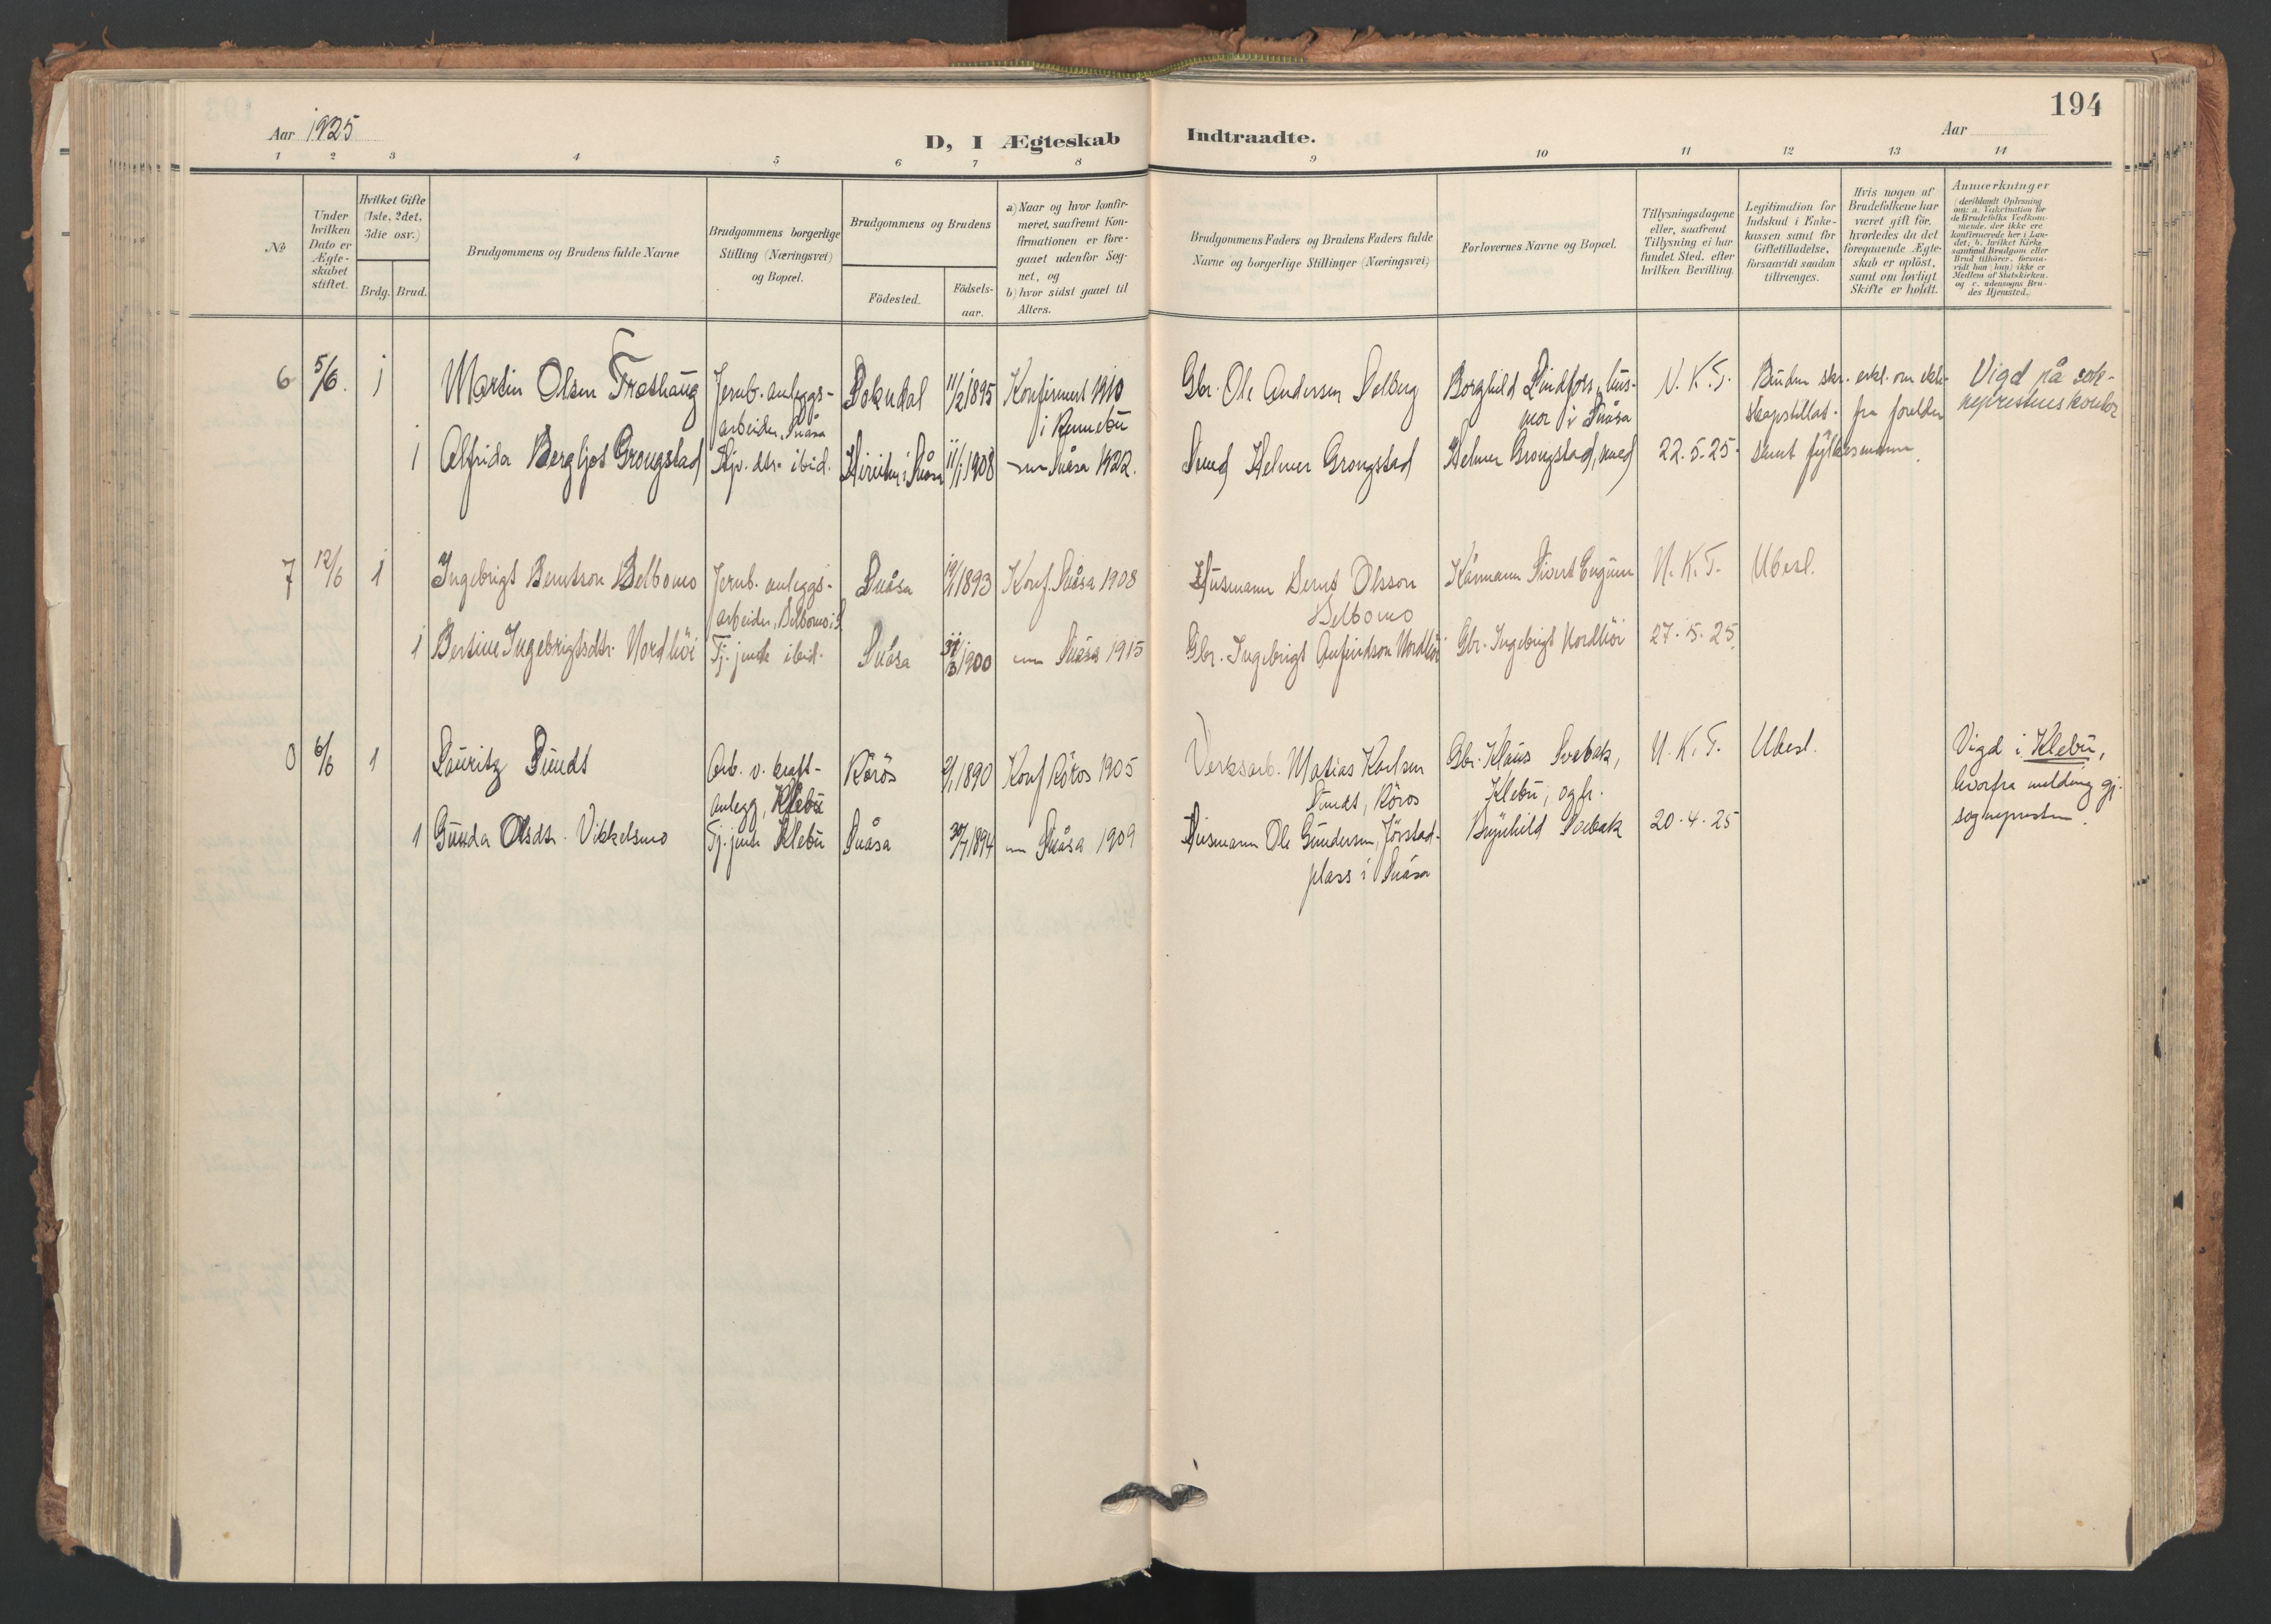 194
Aar 1925
D, I Ægteskab Indtraadte.
Aar
1 2 3 4 5 6 7 8 9 10 11 12 13 14
№
Under hvilken Dato er Ægte-skabet stiftet.
Hvilket Gifte (1ste, 2det, 3die osv.)
Brdg. Brud.
Brudgommens og Brudens fulde Navne
Brudgommens borgerlige Stilling (Næringsvei) og Bopæl.
Brudgommens og Brudens
Födested.
Födsels-aar.
a) Naar og hvor konfir-meret, saafremt Kon-firmationen er fore-gaaet udenfor Sog-net, og
b) hvor sidst gaaet til Alters.
Brudgommens Faders og Brudens Faders fulde Navne og borgerlige Stillinger (Næringsvei)
Forlovernes Navne og Bopæl.
Tillysningsdagene eller, saafremt Tillysning ei har fundet Sted, efter hvilken Bevilling.
Legitimation for Indskud i Enke-kassen samt for Giftetilladelse, forsaavidt saadan tiltrænges.
Hvis nogen af Brudefolkene har været gift för, hvorledes da det foregaaende Ægte-skab er oplöst, samt om lovligt Skifte er holdt.
Anmærkninger (deriblandt Oplysning om: a. Vakcination for de Brudefolks Vedkom-mende, der ikke ere konfirmerede her i Lan-det; b. hvilket Kirke-samfund Brudgom eller Brud tilhörer, forsaa-vidt han (hun) ikke er Medlem af Statskirken, og c. udensogns Bru-des Hjemsted.)
6 5/6. 1 Martin Olsen Trøthaug Jernb. anleggs- 11/2 1895 Konfirmert 1910 Gbr. Ole Andersen Solberg Borghild Lindfors, hus- N. K. T. Vigd på sok-
arbeider, Snåsa i Rennebu mor i Snåsa skapstillat. fra foreldre neprestens kontor
1 Alfrida Bergljot Grongstad ibid. i Snåsa 11/1 1908 Snåsa 1922. Smed Helmer Grongstad Helmer Grongstad, smed 22.5.25. samt fylkesmann.
7 12/6 1 Ingebrigt Berntson Belbomo Jernb. anleggs- Snåsa 1893 Konf. Snåsa 1908 Husmann Bernt Olsson Kårmann Sivert N. K. T. Ubesl.
arbeider, Belbomo i S. Belbomo
1 Bertine Ingebrigtsdtr. Nordhöi Tj. jente ibid. Snåsa 1900 Snåsa 1915 Gbr. Ingebrigt Anfindson Nordhöi Gbr. Ingebrigt Nordhöi 27.5.25.
0 6/6 1 Lauritz Sundt Arb. v. kraft- Röros 1890 Konf Röros 1905 Verksarb. Matias Karlsen Gbr. Klaus Svebak, N. K. T. Ubesl. Vigd i Klebu,
anlegg, Klebu Sundt, Röros Klebu, og fr. hvorfra melding gj.
1 Gunda Olsdtr. Vikkelsmo Tj. jente Klebu Snåsa 30/7 1894 Snåsa 1909 Husmann Ole Gundersen, Jörstad- Brynhild Svebak 20.4.25 sognepresten.
plass i Snåsa